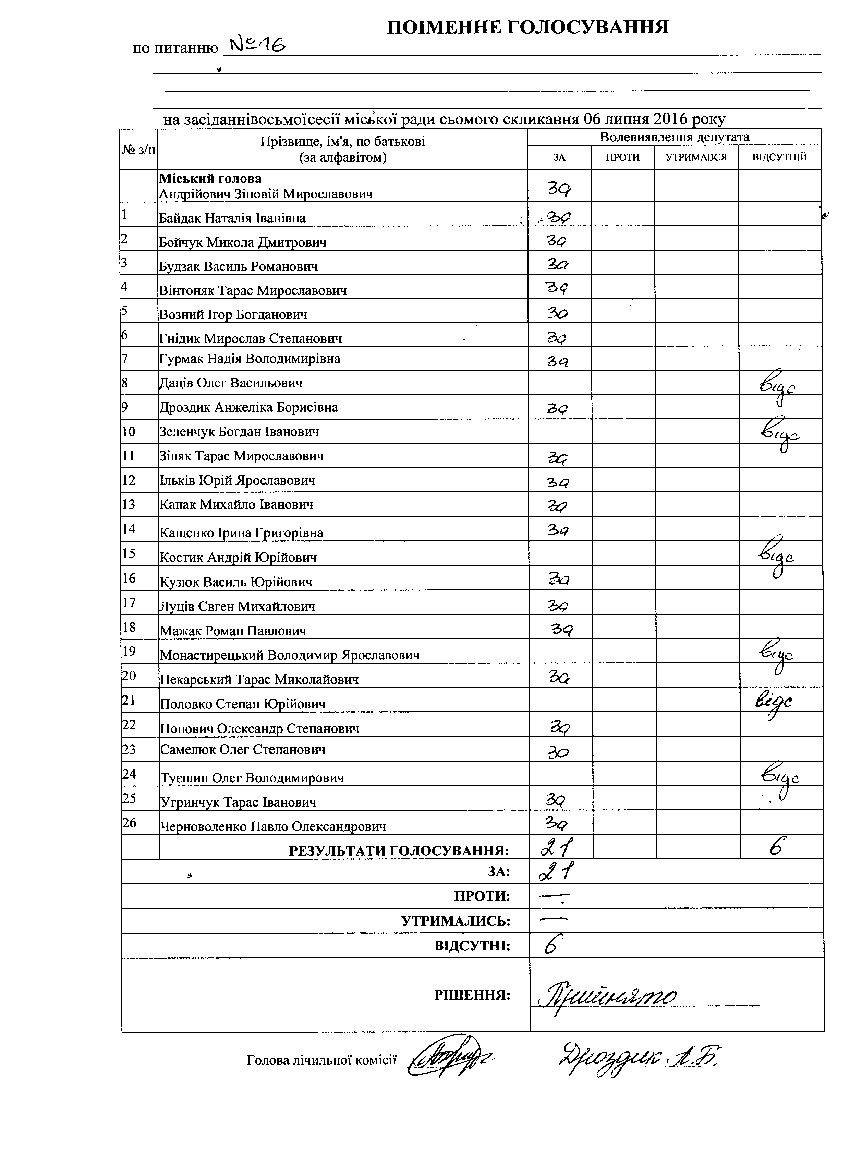 ПОІМЕННЕ ГОЛОСУВАННЯ
по питанню №16
на засіданнівосьмоїсесії міської ради сьомого скликання 06 липня 2016 року
№ з/п Прізвище, ім'я, по батькові (за алфавітом) Волевиявлення депутата
ЗА ПРОТИ УТРИМАВСЯ ВІДСУТНІЙ
Міський голова
Андрійович Зіновій Мирославович За
1 Байдак Наталія Іванівна За
2 Бойчук Микола Дмитрович За
3 Будзак Василь Романович За
4 Вінтоняк Тарас Мирославович За
5 Возний Ігор Богданович За
6 Гнідик Мирослав Степанович За
7 Гурмак Надія Володимирівна За
8 Даців Олег Васильович відс
9 Дроздик Анжеліка Борисівна За
10 Зеленчук Богдан Іванович відс
11 Зіняк Тарас Мирославович За
12 Ільків Юрій Ярославович За
13 Капак Михайло Іванович За
14 Кащенко Ірина Григорівна За
15 Костик Андрій Юрійович відс
16 Кузюк Василь Юрійович За
17 Луців Євген Михайлович За
18 Мажак Роман Павлович За
19 Монастирецький Володимир Ярославович відс
20 Пекарський Тарас Миколайович За
21 Половко Степан Юрійович відс
22 Попович Олександр Степанович За
23 Самелюк Олег Степанович За
24 Туєшин Олег Володимирович відс
25 Угринчук Тарас Іванович За
26 Черноволенко Павло Олександрович За
РЕЗУЛЬТАТИ ГОЛОСУВАННЯ: 21 6
ЗА: 21
ПРОТИ: —
УТРИМАЛИСЬ: —
ВІДСУТНІ: 6
РІШЕННЯ: Прийнято
Голова лічильної комісії Дроздик А.Б.